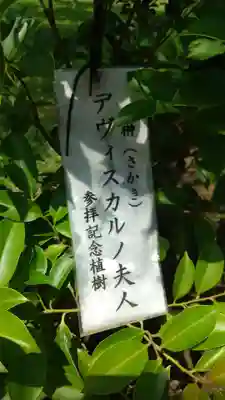 榊（さかき）
アヴィスカルノ夫人
参拝記念植樹